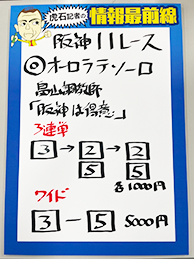 虎石記者の
情報最前線
阪神11レース
◎オーロラテソーロ
畠山調教師
「阪神は得意」
3連単
3→2→2
5 5
各1000円
ワイド
3－5 5000円